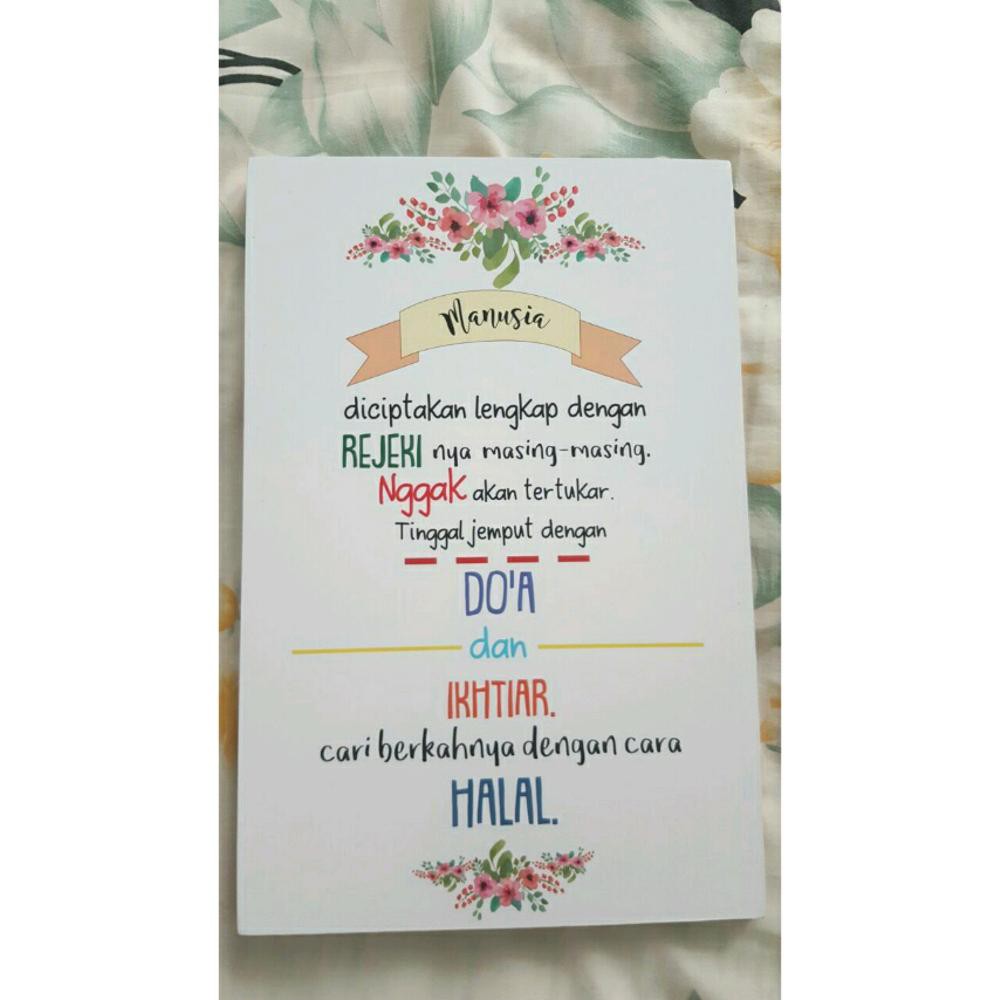 Manusia
diciptakan lengkap dengan
REJEKI nya masing-masing.
Nggak akan tertukar.
Tinggal jemput dengan
DO'A
dan
IKHTIAR.
cari berkahnya dengan cara
HALAL.